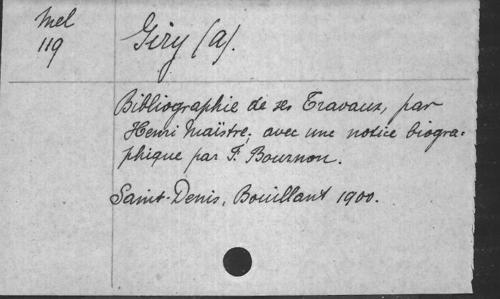 Mel
119
Giry (a).
Bibliographie de ses Travaux, par
Henri Maïstre; avec une notice biogra-
phique par F. Bournon.
Saint-Denis, Bouillant 1900.